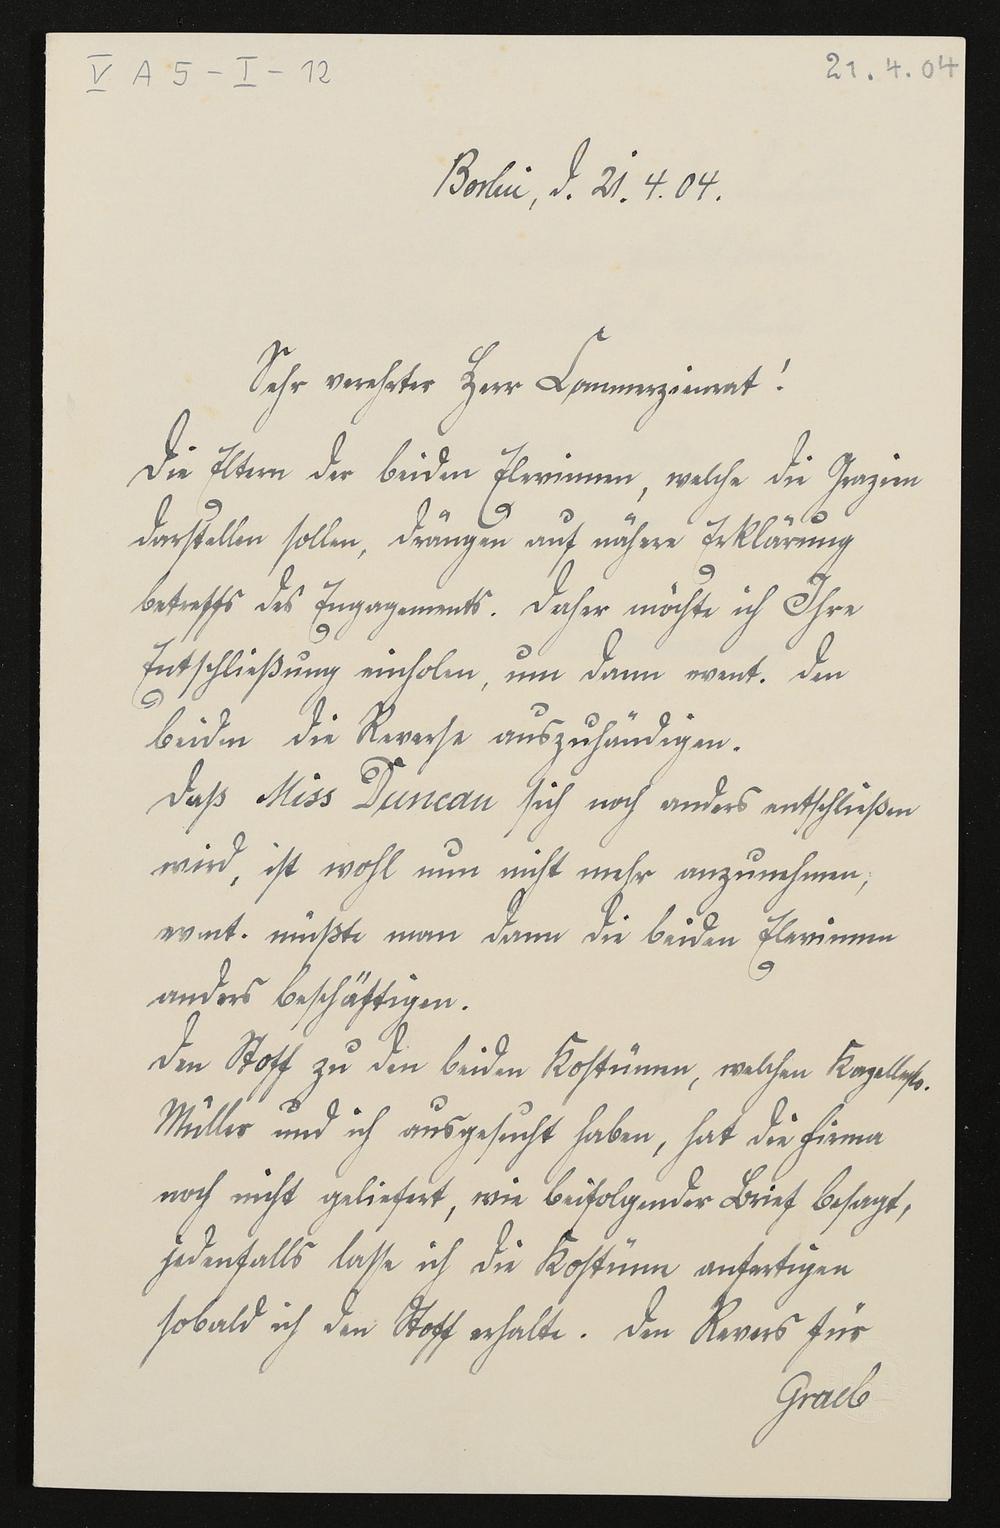 V A 5 - I - 12
21.4.04
Berlin, d. 21. 4. 04.
Sehr verehrter Herr Commerzienrat!
Die Eltern der beiden Elevinnen, welche die Grazien
darstellen sollen, drängen auf nähere Erklärung
betreffs des Engagements. Daher möchte ich Ihre
Entschließung einholen, um dann event. den
beiden die Reverse auszuhändigen.
Daß Miss Duncan sich noch anders entschließen
wird, ist wohl nun nicht mehr anzunehmen;
event. müßte man dann die beiden Elevinnen
anders beschäftigen.
Den Stoff zu den beiden Kostümen, welchen Kapellmstr.
Müller und ich ausgesucht haben, hat die Firma
noch nicht geliefert, wie beifolgender Brief besagt,
jedenfalls lasse ich die Kostüme anfertigen
sobald ich den Stoff erhalte. Den Revers für
Graeb